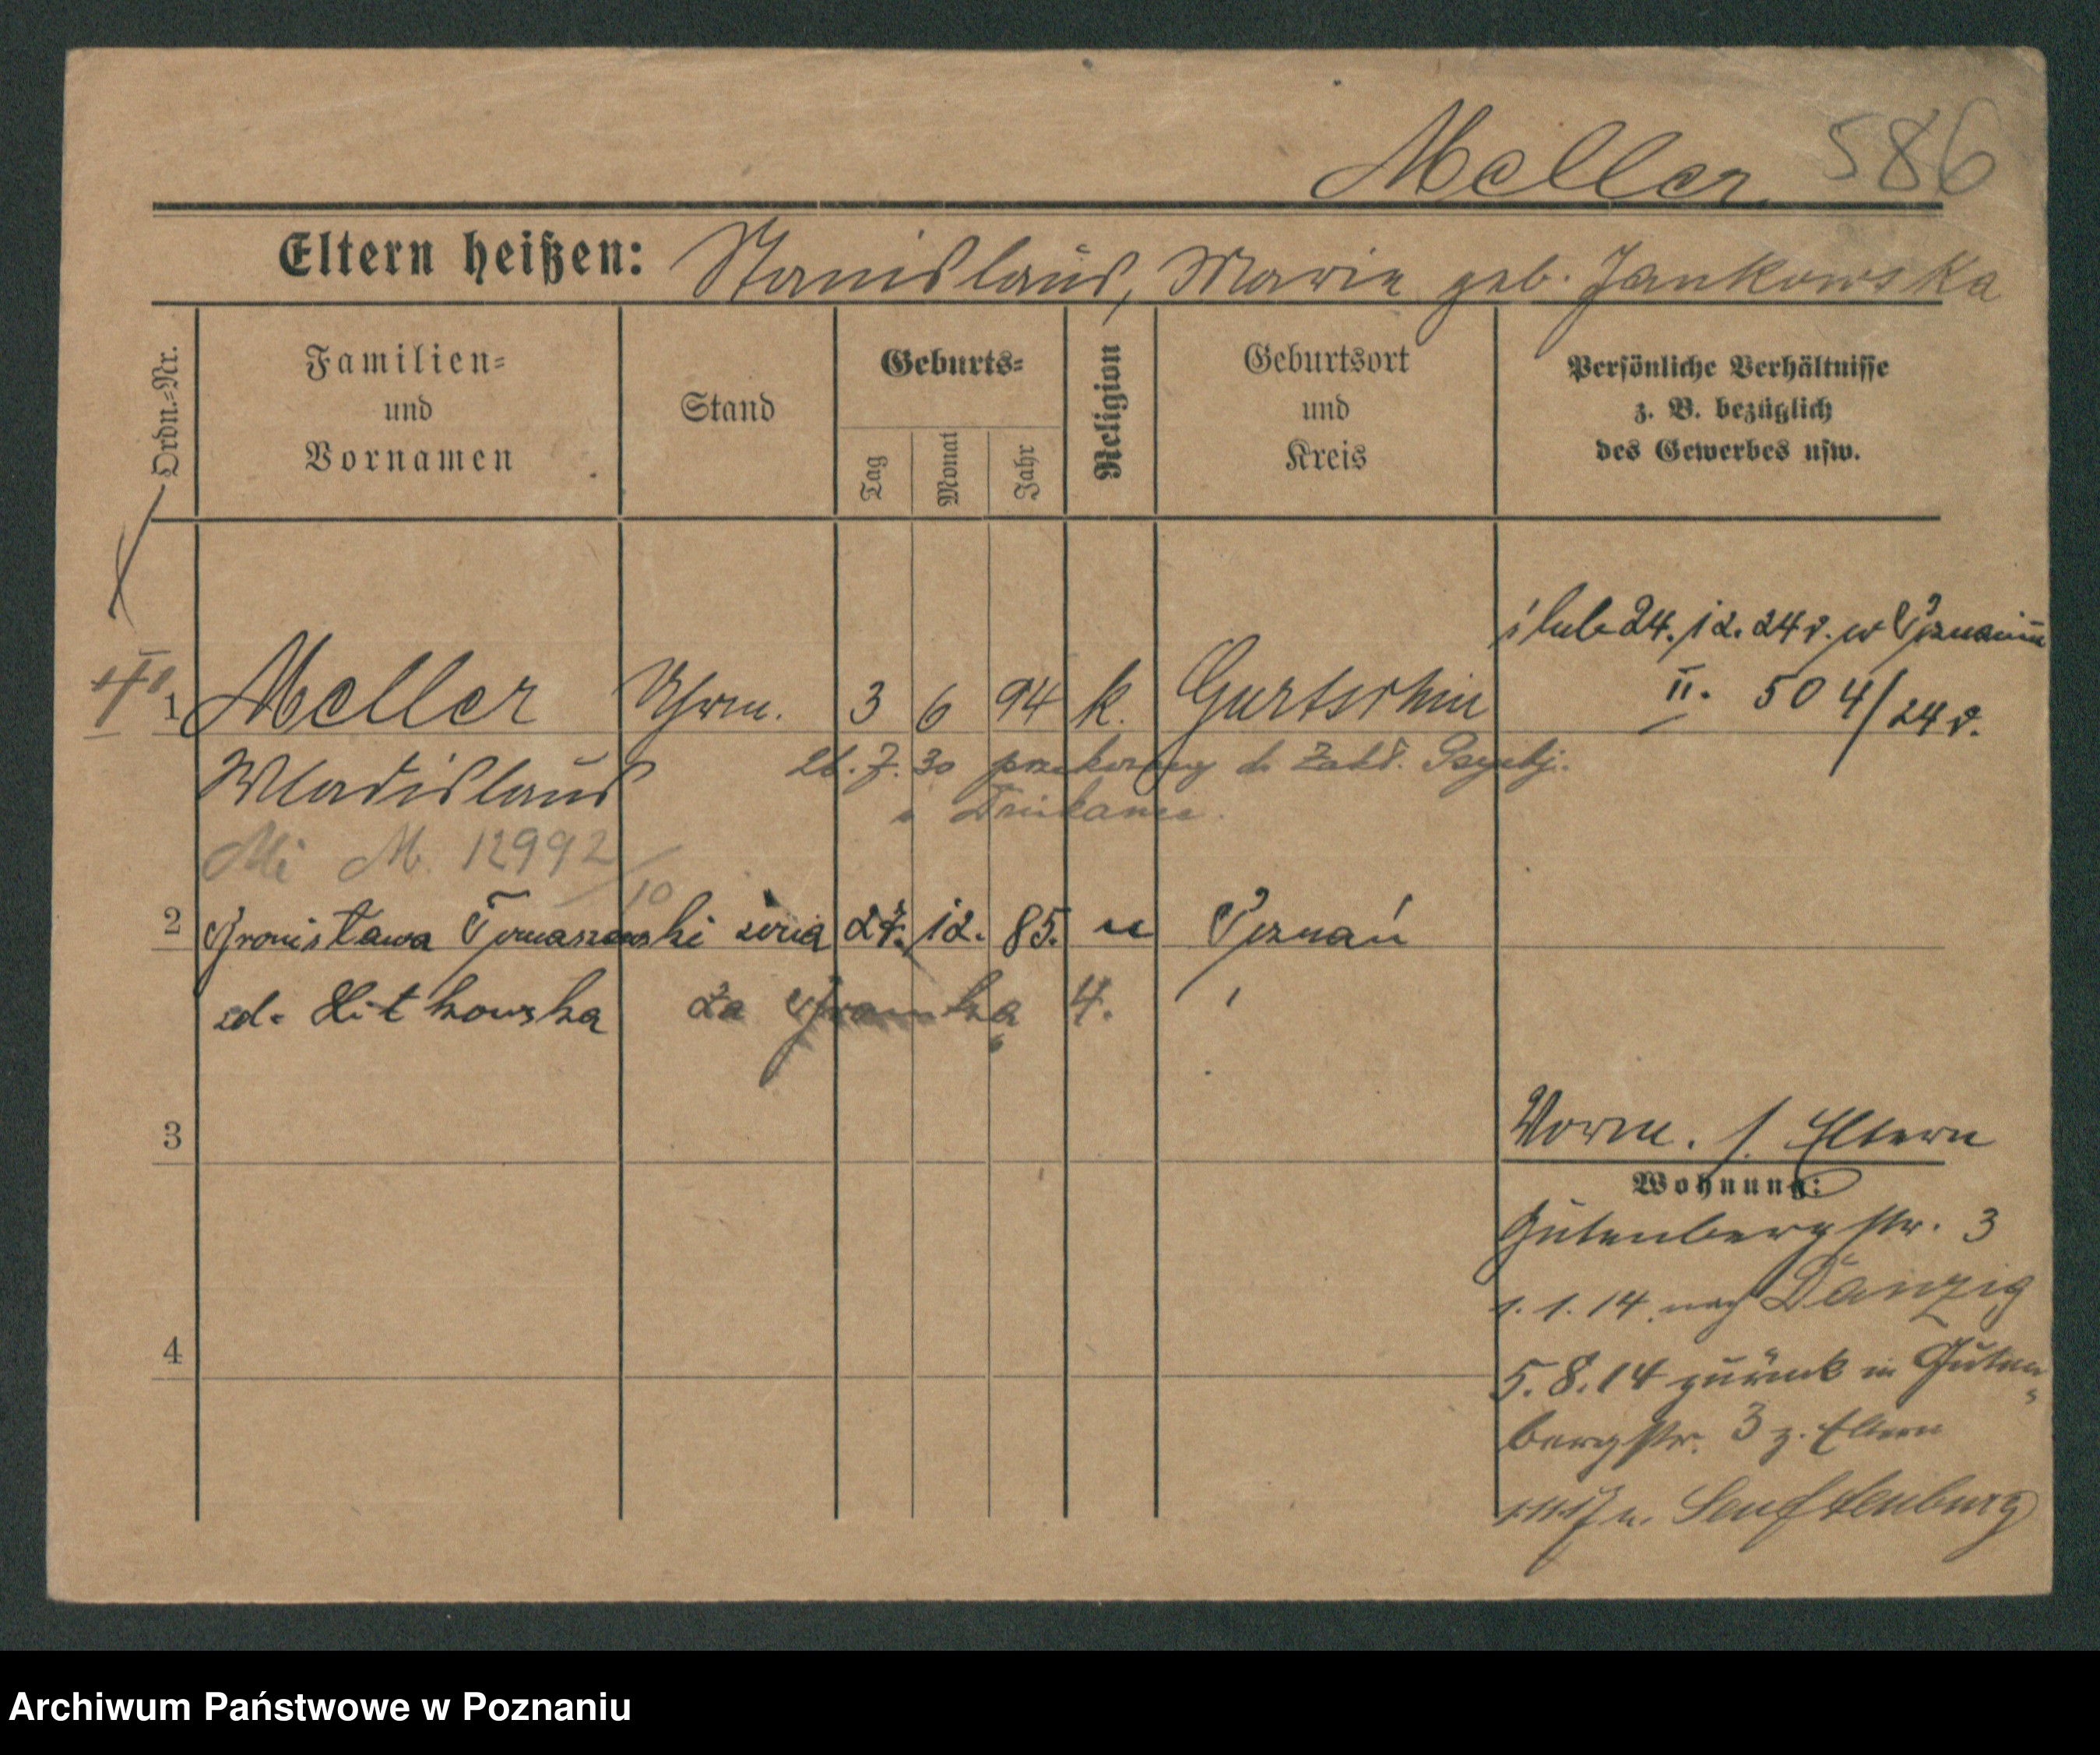 Meller 586
Eltern heißen: Stanislaus, Marie geb. Jankowska
Ordn.-Nr.
Familien-
und
Vornamen
Stand
Geburts-
Tag
Monat
Jahr
Religion
Geburtsort
und
Kreis
Persönliche Verhältnisse
z. B. bezüglich
des Gewerbes usw.
ślub 24.12.24 r. w Poznaniu
II. 504/24 r.
1 Meller Uhrm. 3 6 94 k. Gurtschin
Wladislaus
26.7.30 do Zakł. Psychj.
w Dziekance
M. 12992/10
2 Bronisława Tomaszewski 12. 85. " Poznań
zd.
3
Vorm. s. Eltern
Wohnung:
Gutenbergstr. 3
1.1.14 nach Danzig
5.8.14 zurück in Guten-
bergstr. 3 z. Eltern
n. Senftenburg
4
Archiwum Państwowe w Poznaniu